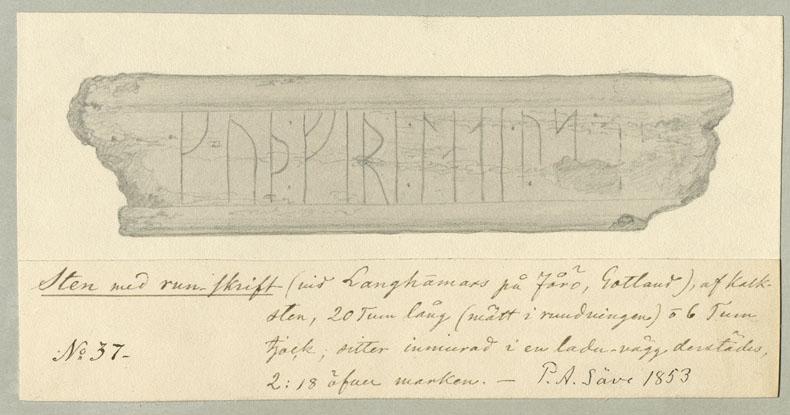 ᚴᚢᚦ᛬ᚠᛁᚱ᛬
Sten med run-skrift (vid Langhāmars på Fårö, Gotland), af Kalk-
sten, 20 Tum lång (mätt i rundningen) o 6 Tum
N:o 37- tjock; sitter inmurad i en ladu-vägg derstädes,
2:18 öfver marken. — P. A. Säve 1853